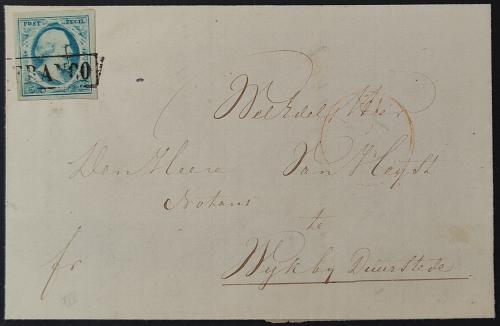 POST ZEGEL
FRANCO
Weledele Heer
Den Heere Van Heyst
Notaris
te
fr Wyk by Duurstede